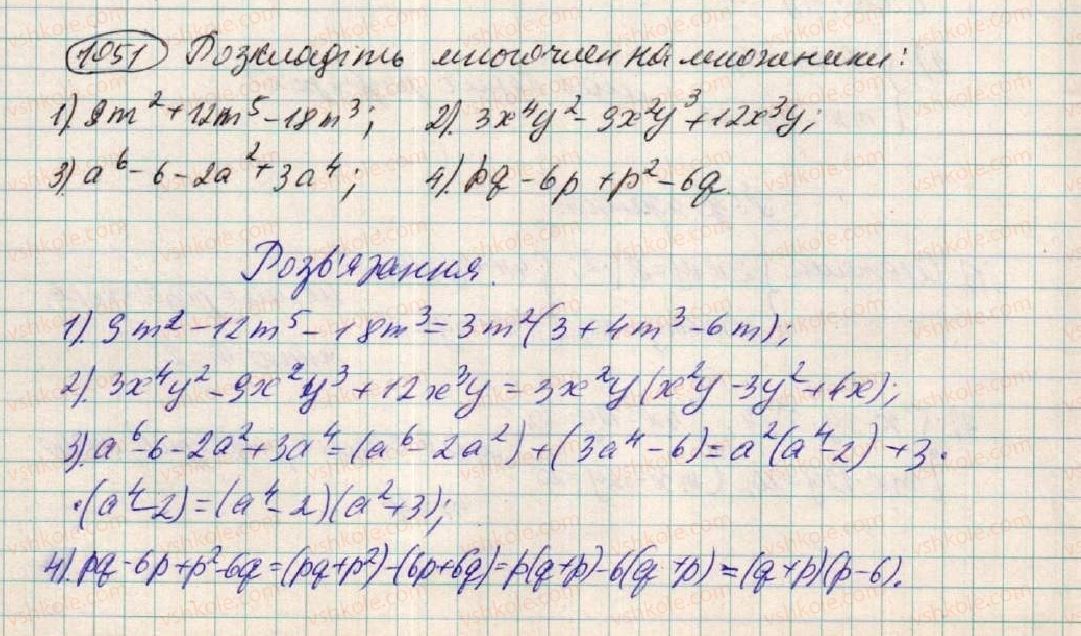 1051 Розкладіть многочлен на множники:
1) 9m² + 12m⁵ - 18m³; 2) 3x⁴y² - 9x²y³ + 12x³y;
3) a⁶ - 6 - 2a² + 3a⁴; 4) pq - 6p + p² - 6q.
Розв'язання.
1) 9m² - 12m⁵ - 18m³ = 3m²(3 + 4m³ - 6m);
2) 3x⁴y² - 9x²y³ + 12x³y = 3x²y(x²y - 3y² + 4x);
3) a⁶ - 6 - 2a² + 3a⁴ = (a⁶ - 2a²) + (3a⁴ - 6) = a²(a⁴ - 2) + 3 ·
· (a⁴ - 2) = (a⁴ - 2)(a² + 3);
4) pq - 6p + p² - 6q = (pq + p²) - (6p + 6q) = p(q + p) - 6(q + p) = (q + p)(p - 6).